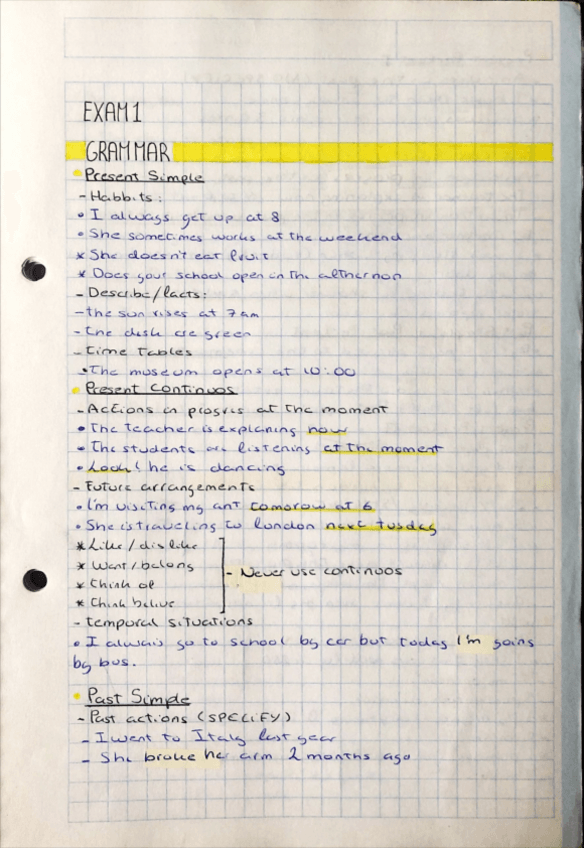 EXAM 1
GRAMMAR
Present Simple
- Habbits:
• I always get up at 8
• She sometimes works at the weekend
* She doesn't eat fruit
* Does your school open in the afthernon
- Describe/facts:
- the sun rises at 7am
- the desk are green
- time tables
• The museum opens at 10:00
Present Continuos
- Actions in progris at the moment
• The teacher is explaning now
• The students are listening at the moment
• Look! he is dancing
- Future arrangements
• I'm visiting my ant tomorow at 6
• She is traveling to london next tusday
* Like / dislike
* Want / belong
* think of
* think belive
- Never use continuos
- temporal situations
• I always go to school by car but today I'm going
by bus.
Past Simple
- Past actions (SPECIFY)
- I went to Italy last year
- She broke her arm 2 months ago